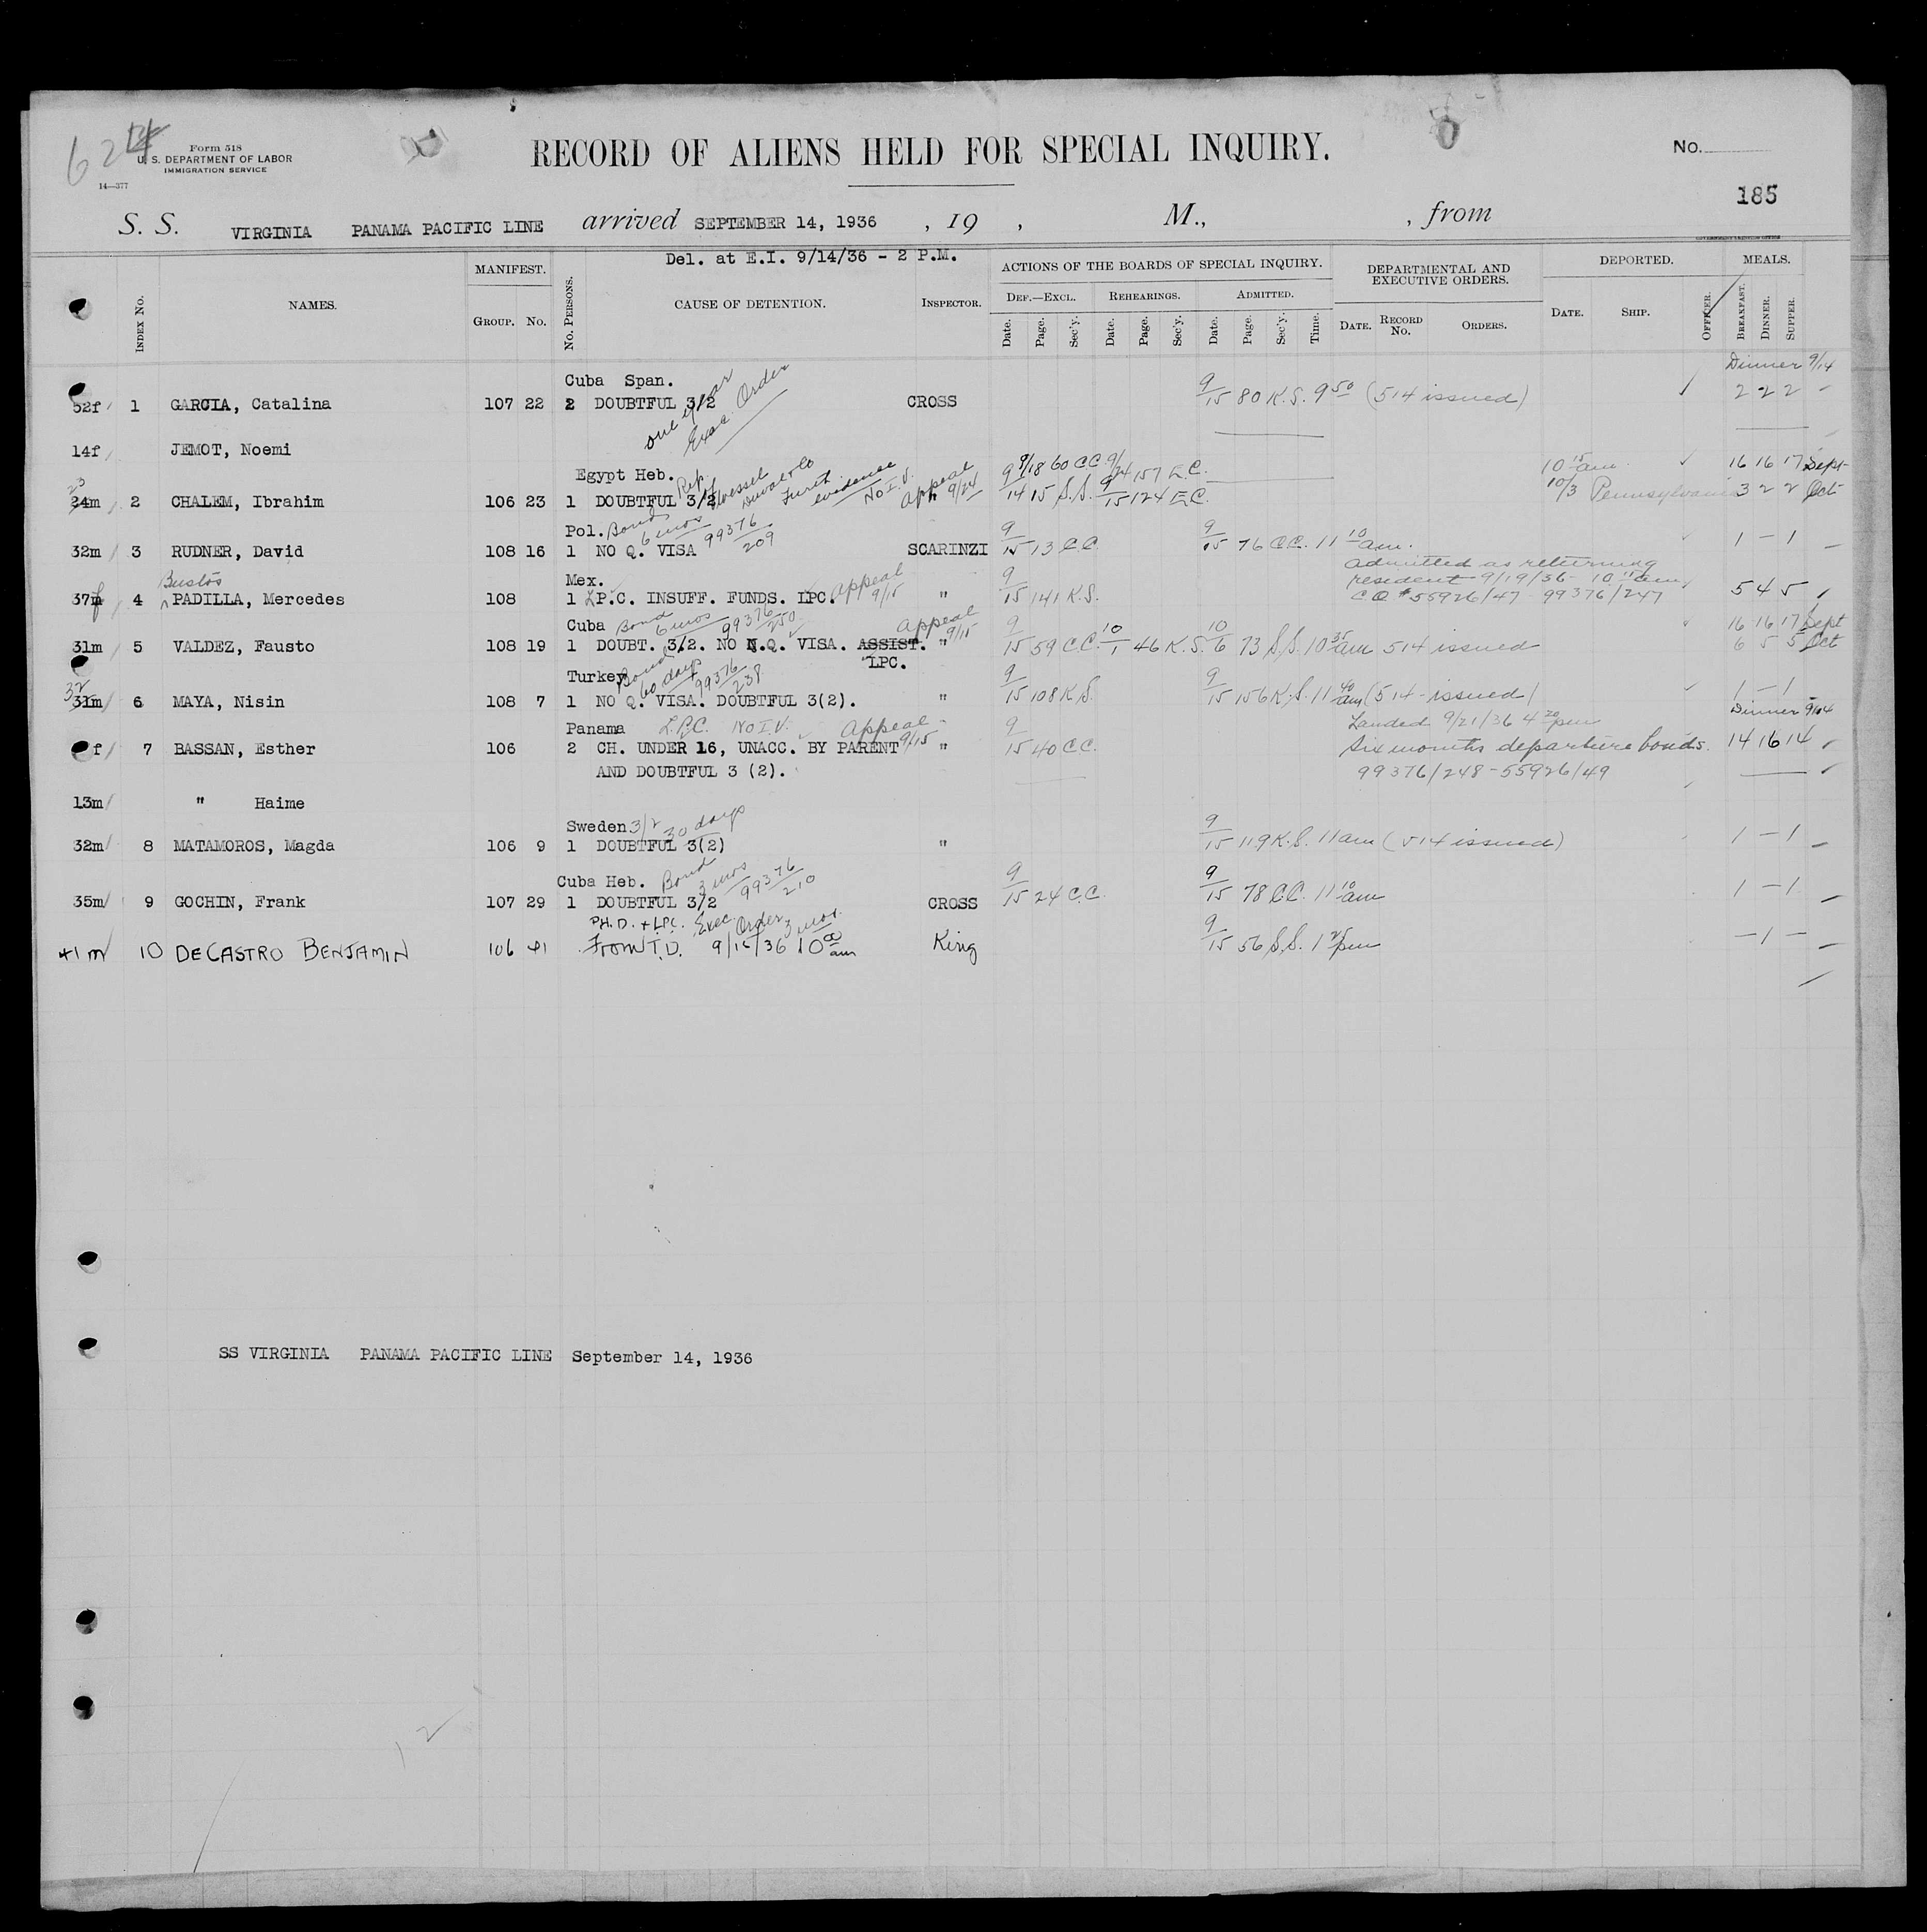 624
Form 518
U. S. DEPARTMENT OF LABOR
IMMIGRATION SERVICE
14—377
RECORD OF ALIENS HELD FOR SPECIAL INQUIRY.
No.
185
S. S. VIRGINIA PANAMA PACIFIC LINE arrived SEPTEMBER 14, 1936 , 19 , M., , from
Del. at E.I. 9/14/36 - 2 P.M.
INDEX No. NAMES. MANIFEST. GROUP. No. No. PERSONS. CAUSE OF DETENTION. INSPECTOR.
ACTIONS OF THE BOARDS OF SPECIAL INQUIRY.
DEF.—EXCL. REHEARINGS. ADMITTED.
Date. Page. Sec'y. Date. Page. Sec'y. Date. Page. Sec'y. Time.
DEPARTMENTAL AND EXECUTIVE ORDERS.
DATE. RECORD No. ORDERS.
DEPORTED.
DATE. SHIP. OFFICER.
MEALS.
BREAKFAST. DINNER. SUPPER.
Dinner 9/14
Cuba Span. one year Exec. Order
52f 1 GARCIA, Catalina 107 22 2 DOUBTFUL 3/2 CROSS 9/15 80 K.S. 9 50 (514 issued) 2 2 2
14f JEMOT, Noemi
Egypt Heb. Rep. of vessel Furth evidence No I.V. Appeal 9/24 9/18 60 C.C. 9/24 157 E.C. 10 15 am 16 16 17 Sept
23 24m 2 CHALEM, Ibrahim 106 23 1 DOUBTFUL 3/2 9/14 15 S.S. 9/15 124 E.C. 10/3 Pennsylvania 3 2 2 Oct
Pol. Bond 6 mos 99376/209
32m 3 RUDNER, David 108 16 1 NO Q. VISA SCARINZI 9/15 13 C.C. 9/15 76 C.C. 11 10 am. 1 — 1
Bustos Mex. Appeal 9/15 admitted as returning resident 9/19/36 - 10 15 am
37f 4 PADILLA, Mercedes 108 1 L.P.C. INSUFF. FUNDS. LPC. " 9/15 141 K.S. C.O. #55926/47 99376/247 5 4 5
Cuba Bond 6 mos 99376/250 Appeal 9/15 16 16 17 Sept
31m 5 VALDEZ, Fausto 108 19 1 DOUBT. 3/2. NO N.Q. VISA. ASSIST. " 9/15 59 C.C. 10/1 46 K.S. 10/6 73 S.S. 10 35 am 514 issued 6 5 5 Oct
LPC.
Turkey Bond 60 days 99376/238
32 31m 6 MAYA, Nisin 108 7 1 NO Q. VISA. DOUBTFUL 3(2). " 9/15 108 K.S. 9/15 156 K.S. 11 40 am (514-issued) 1 — 1
Panama L.P.C. No I.V. Appeal 9/15 Landed 9/21/36 4 20 pm Dinner 9/14
f 7 BASSAN, Esther 106 2 CH. UNDER 16, UNACC. BY PARENT " 9/15 40 C.C. Six months departure bonds. 14 16 14
AND DOUBTFUL 3 (2). 99376/248-55926/49
13m " Haime
Sweden 3/2 30 days
32m 8 MATAMOROS, Magda 106 9 1 DOUBTFUL 3(2) " 9/15 119 K.S. 11 am (514 issued) 1 — 1
Cuba Heb. Bond 3 mos 99376/210
35m 9 GOCHIN, Frank 107 29 1 DOUBTFUL 3/2 CROSS 9/15 24 C.C. 9/15 78 C.C. 11 10 am 1 — 1
PH.D. + LPC. Exec. Order 3 mos.
41m 10 DECASTRO BENJAMIN 106 41 From T.D. 9/15/36 10 00 am King 9/15 56 S.S. 1 25 pm — 1 —
SS VIRGINIA PANAMA PACIFIC LINE September 14, 1936
12